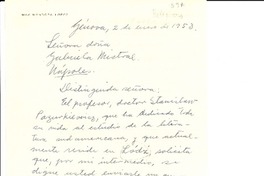 Génova, 2 de enero de 1953
Señora doña
Gabriela Mistral
Nápoles.
Distinguida señora:
El profesor, doctor Stanislaw
que ha dedicado toda
su vida al estudio de la litera-
tura sudamericana, y que actual-
mente reside en Lódź, solicita
que, por mi intermedio, se
digne usted enviarle un